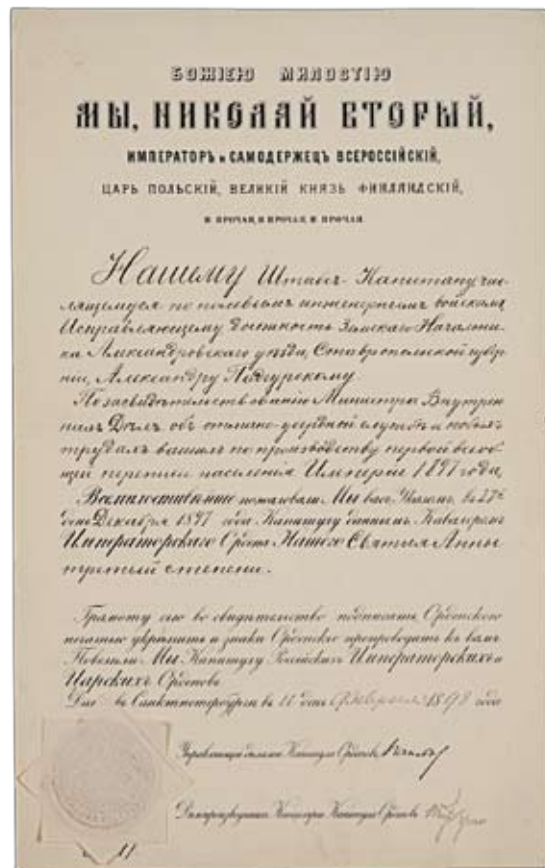 БОЖІЕЮ МИЛОСТІЮ
МЫ, НИКОЛАЙ ВТОРЫЙ,
ИМПЕРАТОРЪ и САМОДЕРЖЕЦЪ ВСЕРОССІЙСКІЙ,
ЦАРЬ ПОЛЬСКІЙ, ВЕЛИКІЙ КНЯЗЬ ФИНЛЯНДСКІЙ,
И ПРОЧАЯ, И ПРОЧАЯ, И ПРОЧАЯ.
Нашему Штабсъ-Капитану чис-
лящемуся по полевымъ инженернымъ войскамъ,
Исправляющему должность Земскаго Начальни-
ка Александровскаго уѣзда, Ставропольской губер-
ніи, Александру
По засвидѣтельствованію Министра Внутрен-
нихъ Дѣлъ объ отлично-усердной службѣ и
трудахъ вашихъ по производству первой всеоб-
щей переписи населенія Имперіи 1897 года,
Всемилостивѣйше пожаловали Мы васъ Указомъ, въ 27й
день Декабря 1897 года Капитулу даннымъ, Кавалеромъ
Императорскаго Ордена Нашего Святыя Анны
третьей степени.
Грамоту сію во свидѣтельство подписать, Орденскою
печатью укрѣпить и знаки Орденскіе препроводить къ вамъ
Повелѣли Мы Капитулу Россійскихъ Императорскихъ и
Царскихъ Орденовъ.
Дана въ Санктпетербургѣ въ 11 день Февраля 1898 года
Управляющій дѣлами Капитула Орденовъ
Дѣлопроизводитель Канцеляріи Капитула Орденовъ